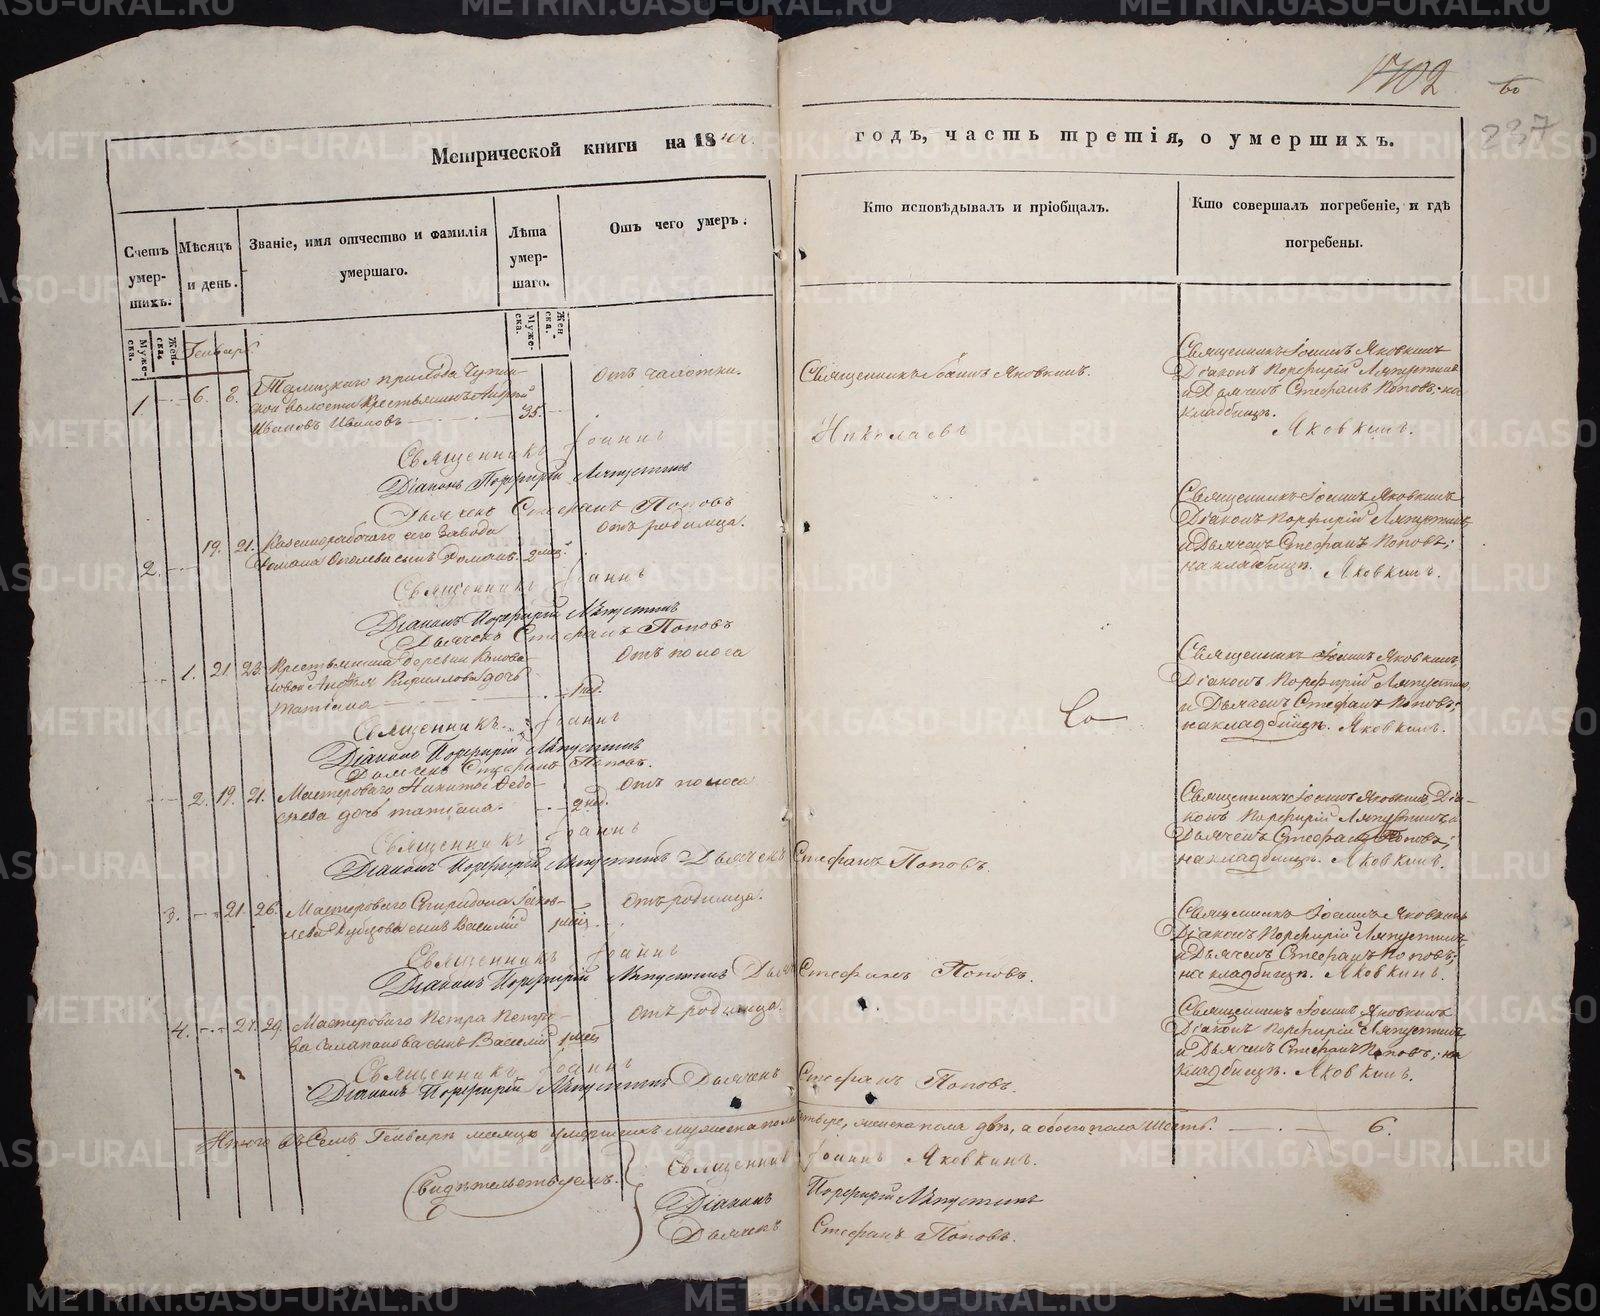 1702
60
237
Метрической книги на 1844.
годъ, часть третія, о умершихъ.
Счетъ умер-шихъ.
Мѣсяцъ и день.
Званіе, имя отчество и фамилія умершаго.
Лѣта умер-шаго.
Отъ чего умеръ.
Кто исповѣдывалъ и пріобщалъ.
Кто совершалъ погребеніе, и гдѣ погребены.
Муже-ска.
Жен-ска.
Муже-ска.
Жен-ска.
Генварь.
1. 6. 8. Талицкаго прихода
кой волости Крестьянинъ Андрей
Ивановъ Ивановъ 35.
Отъ чахотки.
Священникъ Іоаннъ Яковкинъ.
Священникъ Іоаннъ Яковкинъ
Діаконъ Порфирій Ляпустинъ
и Дьячекъ Стефанъ Поповъ; на
кладбищѣ.
Священникъ Іоаннъ
Николаевъ
Яковкинъ.
Діаконъ Порфирій Ляпустинъ
Дьячекъ Стефанъ Поповъ
2. 19. 21. сего завода
Романа сынъ Романъ. 2 мѣс.
Отъ родимца.
Священникъ Іоаннъ Яковкинъ
Діаконъ Порфирій Ляпустинъ
и Дьячекъ Стефанъ Поповъ;
на кладбищѣ. Яковкинъ.
Священникъ Іоаннъ
Діаконъ Порфирій Ляпустинъ
Дьячекъ Стефанъ Поповъ
1. 21. 23. Крестьянина деревни
Кириллова дочь
Татіана 1 нед.
Отъ поноса
Священникъ Іоаннъ Яковкинъ,
Діаконъ Порфирій Ляпустинъ
и Дьячекъ Стефанъ Поповъ;
на кладбищѣ. Яковкинъ.
Священникъ. Іоаннъ
Діаконъ Порфирій Ляпустинъ
Дьячекъ Стефанъ Поповъ.
2. 19. 21. Мастероваго Никиты Ѳедо-
дочь Татіана. 2 нед.
Отъ поноса
Священникъ Іоаннъ Яковкинъ, Діа-
конъ Порфирій Ляпустинъ и
Дьячекъ Стефанъ Поповъ;
на кладбищѣ. Яковкинъ.
Священникъ Іоаннъ
Діаконъ Порфирій Ляпустинъ Дьячекъ Стефанъ Поповъ.
3. 21. 26. Мастероваго Спиридона Яков-
лева сынъ Василій
Отъ родимца.
Священникъ Іоаннъ Яковкинъ
Діаконъ Порфирій Ляпустинъ
и Дьячекъ Стефанъ Поповъ;
на кладбищѣ. Яковкинъ.
Священникъ Іоаннъ
Діаконъ Порфирій Ляпустинъ Дьячекъ Стефанъ Поповъ.
4. 27. 29. Мастероваго Петра Петро-
ва сынъ Василій
Отъ родимца.
Священникъ Іоаннъ Яковкинъ
Діаконъ Порфирій Ляпустинъ
и Дьячекъ Стефанъ Поповъ; на
кладбищѣ. Яковкинъ.
Священникъ Іоаннъ
Діаконъ Порфирій Ляпустинъ Дьячекъ Стефанъ Поповъ.
Итого въ Семъ Генварѣ мѣсяцѣ умершихъ мужеска пола четыре, женска пола двѣ, а обоего пола шесть. 6.
Свидѣтельствуемъ.
Священникъ Іоаннъ Яковкинъ.
Діаконъ Порфирій Ляпустинъ
Дьячекъ Стефанъ Поповъ.
METRIKI.GASO-URAL.RU